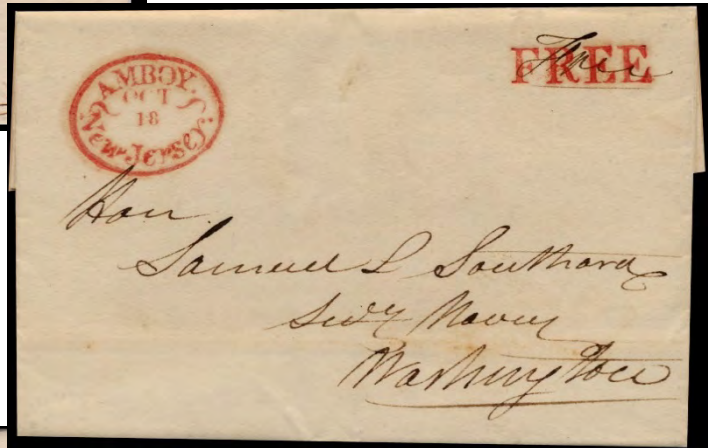 AMBOY.
OCT
18
New-Jersey.
FREE
Free
Hon
Samuel L Southard
Secy Navy
Washington